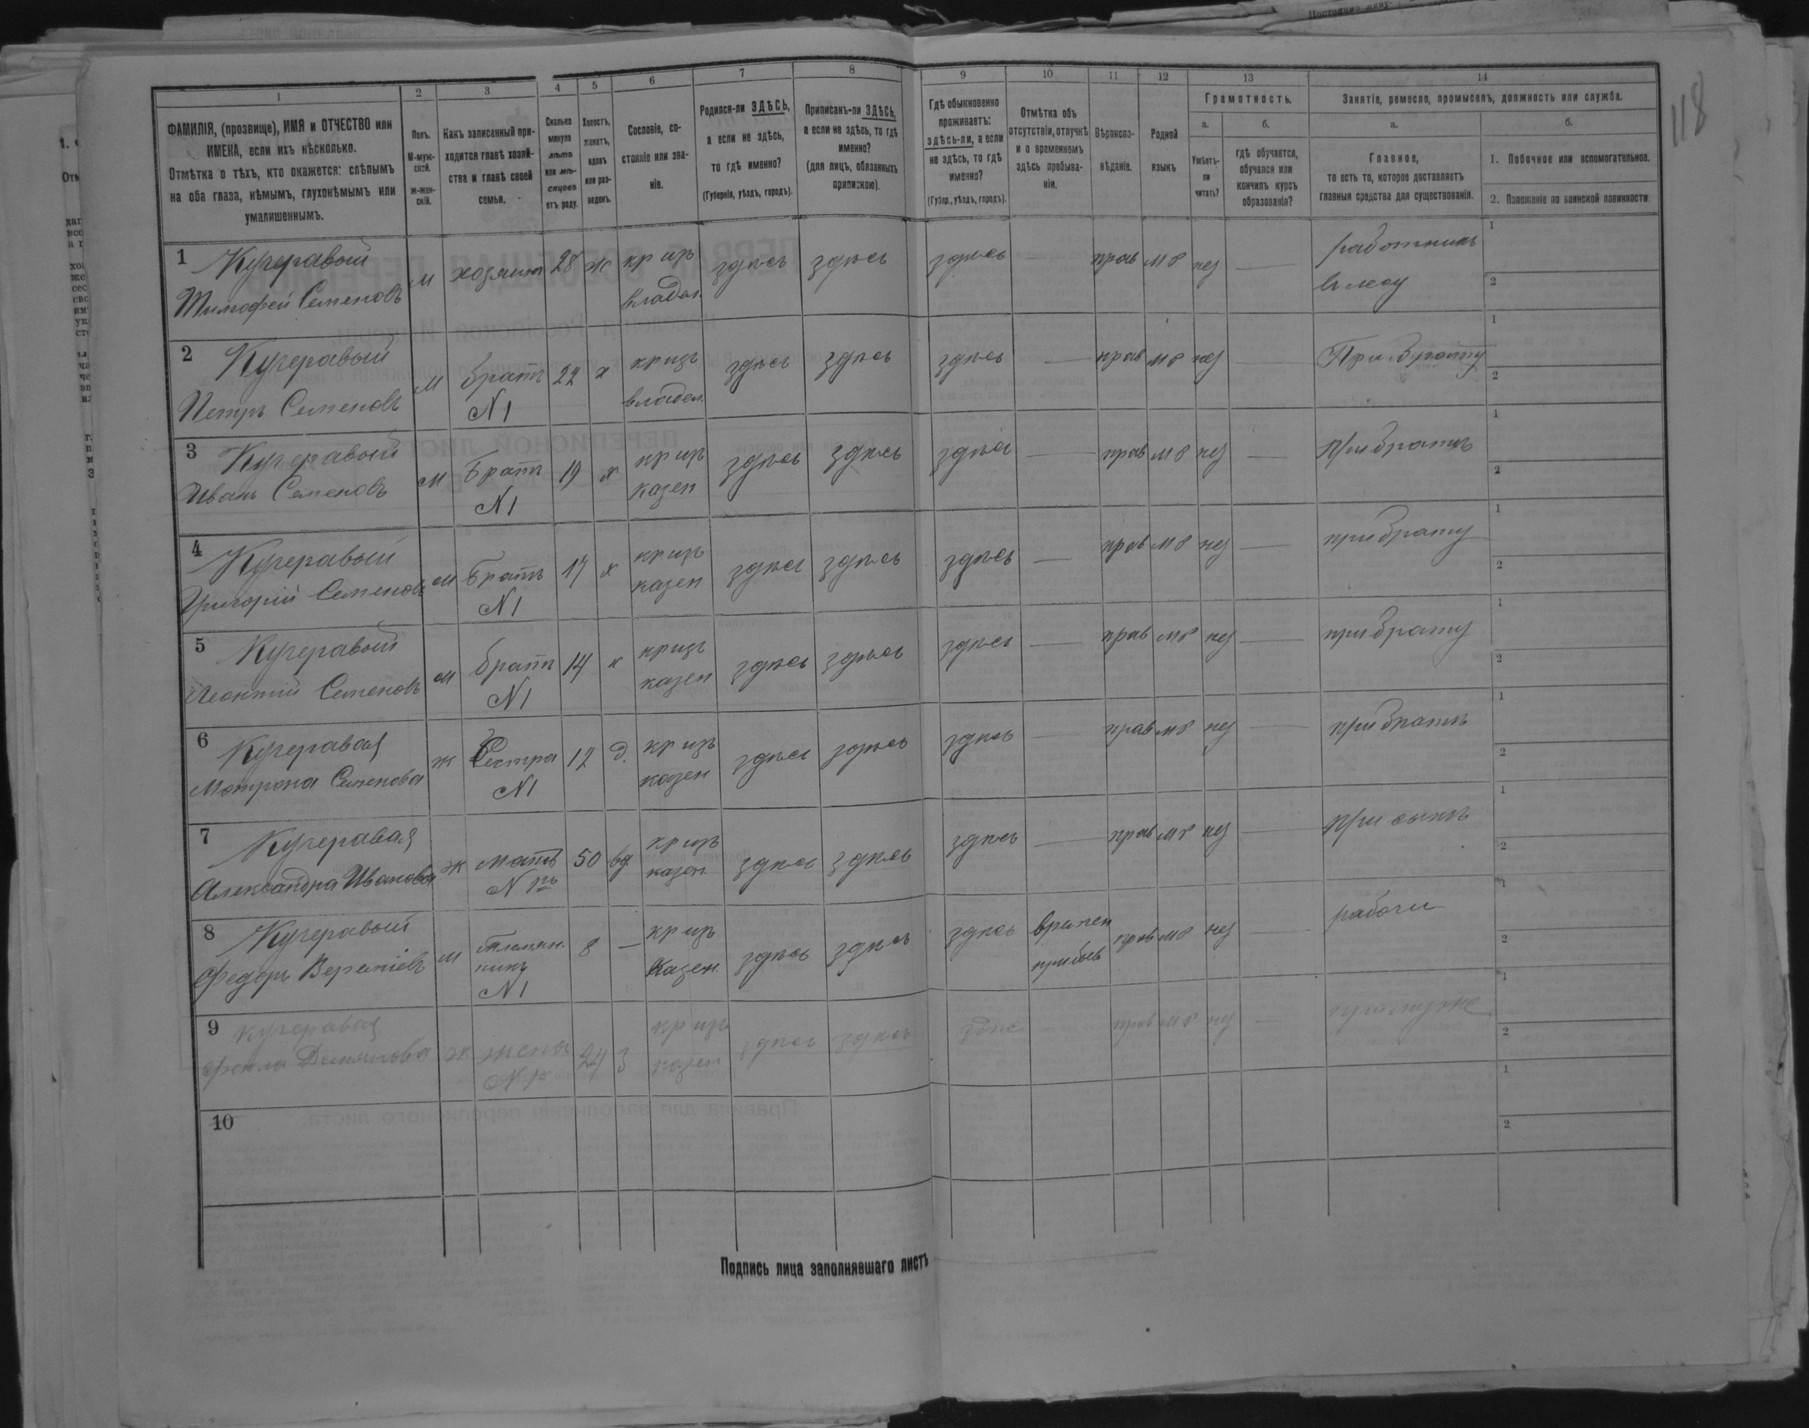 118
1 2 3 4 5 6 7 8 9 10 11 12 13 14
ФАМИЛІЯ, (прозвище), ИМЯ и ОТЧЕСТВО или
ИМЕНА, если ихъ нѣсколько.
Отмѣтка о тѣхъ, кто окажется: слѣпымъ
на оба глаза, нѣмымъ, глухонѣмымъ или
умалишеннымъ.
Полъ.
М-муж-
ской.
ж-жен-
скій.
Какъ записанный при-
ходится главѣ хозяй-
ства и главѣ своей
семьи.
Сколько
минуло
лѣтъ
или мѣ-
сяцевъ
отъ роду.
Холостъ,
женатъ,
вдовъ
или раз-
веденъ.
Сословіе, со-
стояніе или зва-
ніе.
Родился-ли ЗДѢСЬ,
а если не здѣсь,
то гдѣ именно?
(Губернія, уѣздъ, городъ).
Приписанъ-ли ЗДѢСЬ,
а если не здѣсь, то гдѣ
именно?
(для лицъ, обязанныхъ
припискою).
Гдѣ обыкновенно
проживаетъ:
здѣсь-ли, а если
не здѣсь, то гдѣ
именно?
(Губер., уѣздъ, городъ).
Отмѣтка объ
отсутствіи, отлучкѣ
и о временномъ
здѣсь пребыва-
ніи.
Вѣроиспо-
вѣданіе.
Родной
языкъ
Грамотность.
а.
Умѣетъ-
ли
читать?
б.
гдѣ обучается,
обучался или
кончилъ курсъ
образованія?
Занятія, ремесло, промыселъ, должность или служба.
а.
Главное,
то есть то, которое доставляетъ
главныя средства для существованія.
б.
1. Побочное или вспомогательное.
2. Положеніе по воинской повинности
1 Кучеравый
Тимофей Семеновъ м хозяинъ 28 ж кр изъ владел здѣсь здѣсь здѣсь — прав мр нѣ — работникъ
в лесу
2 Кучеравый
Петръ Семеновъ м братъ N1 22 х кр изъ владел здѣсь здѣсь здѣсь — прав мр нѣ — При брату
3 Кучеравый
Иванъ Семеновъ м Братъ N1 19 х кр изъ казен здѣсь здѣсь здѣсь — прав мр нѣ — при братѣ
4 Кучеравый
Григорій Семеновъ м Братъ N1 17 х кр изъ казен здѣсь здѣсь здѣсь — прав мр нѣ — при брату
5 Кучеравый
Леонтій Семеновъ м братъ N1 14 х кр изъ казен здѣсь здѣсь здѣсь — прав мр нѣ — при брату
6 Кучеравая
Матрона Семенова ж Сестра N1 12 д. кр изъ казен здѣсь здѣсь здѣсь — прав мр нѣ — при братѣ
7 Кучеравая
Александра Иванова ж мать N 1го 50 вд кр изъ казен здѣсь здѣсь здѣсь — прав мр нѣ — при сынѣ
8 Кучеравый
Федоръ м племян-
никъ
N1 8 — кр изъ Казен здѣсь здѣсь здѣсь времен
прибыв прав мр нѣ — рабочи
9 Кучеравая
Фекла ж жена 24 з кр изъ казен здѣсь здѣсь здѣс — прав мр нѣ — при муже
10
Подпись лица заполнявшаго листъ